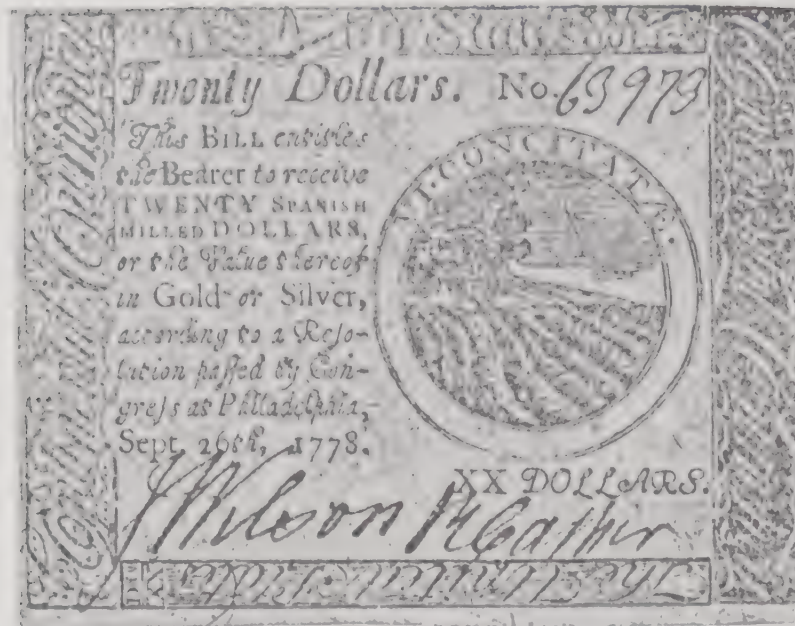 Twenty Dollars. No. 63973
This BILL entitles
the Bearer to receive
TWENTY SPANISH
MILLED DOLLARS,
or the Value thereof
in Gold or Silver,
according to a Reso-
lution passed by Con-
gress at Philadelphia,
Sept. 26th, 1778.
VI CONCITATÆ.
XX DOLLARS.
J Wilson